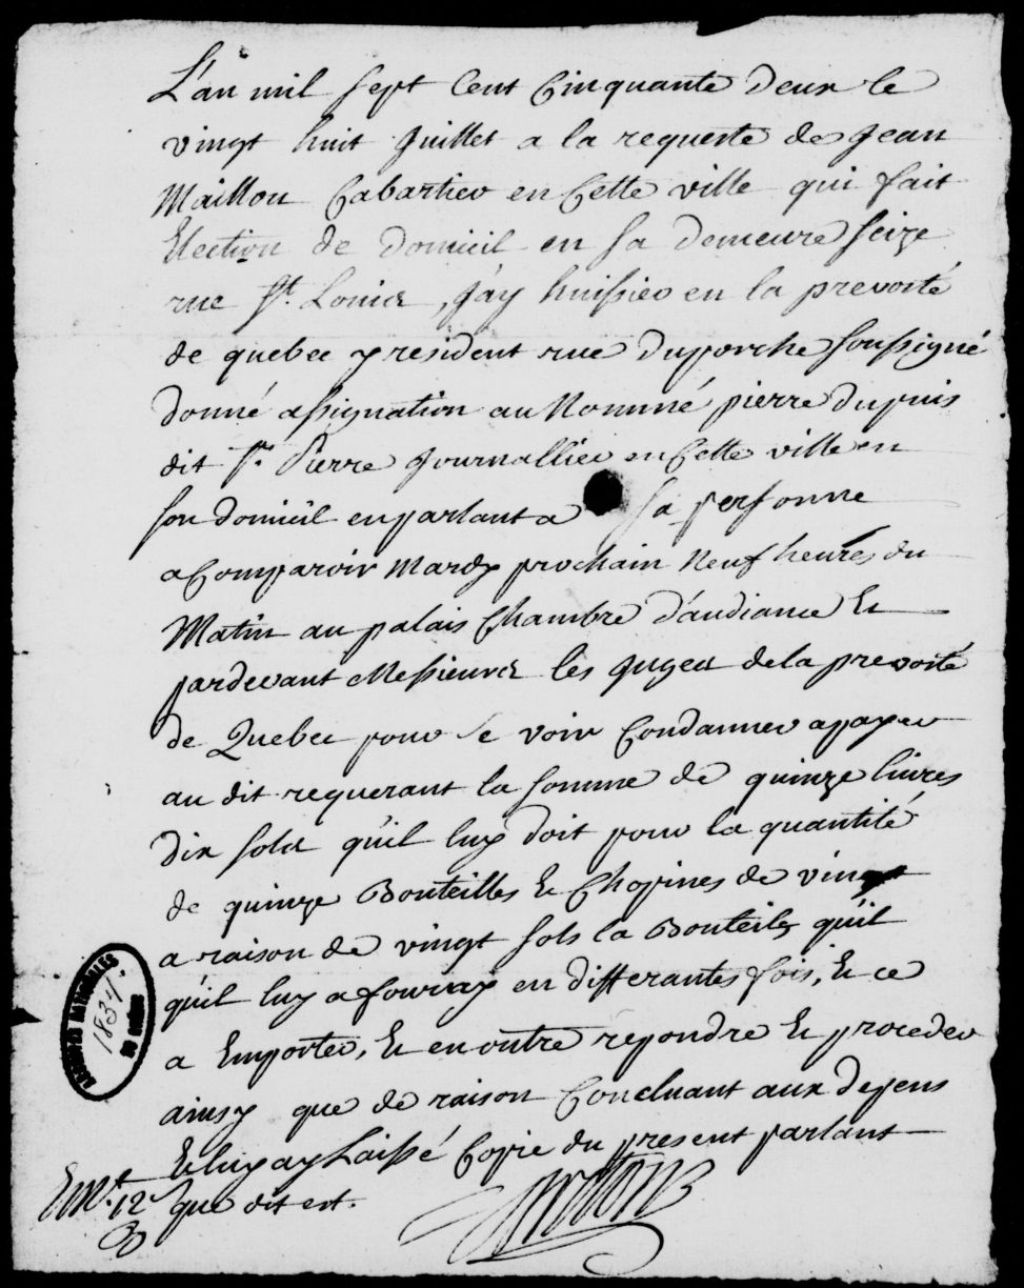 L'an mil sept Cent Cinquante deux le
vingt huit Juillet a la requeste de Jean
Maillou Cabartier en Cette ville qui fait
Election de domicil en sa demeure seize
rue St. Louis, J'ay huissier en la prevosté
de quebec y resident rue Duporche soussigné
donné assignation au Nommé pierre Dupuis
dit St. Pierre Journallier en Cette ville en
son domicil en parlant a sa personne
a Comparoir Mardy prochain Neuf heures du
Matin au palais Chambre d'audiance Et
pardevant Messieurs les Juges de la prevosté
de Quebec pour se voir Condanner a payer
au dit requerant la somme de quinze livres
dix sols qu'il luy doit pour la quantité
de quinze Bouteilles Et Chopines de vin
a raison de vingt sols la Bouteile qu'il
qu'il luy a fourny en differantes fois, Et ce
a Emporter, Et en outre repondre Et proceder
ainsy que de raison Concluant aux depens
Et luy ay Laissé Copie du present parlant
que dit est.
Emt. 12s
ARCHIVES NATIONALES
1834
DU QUÉBEC